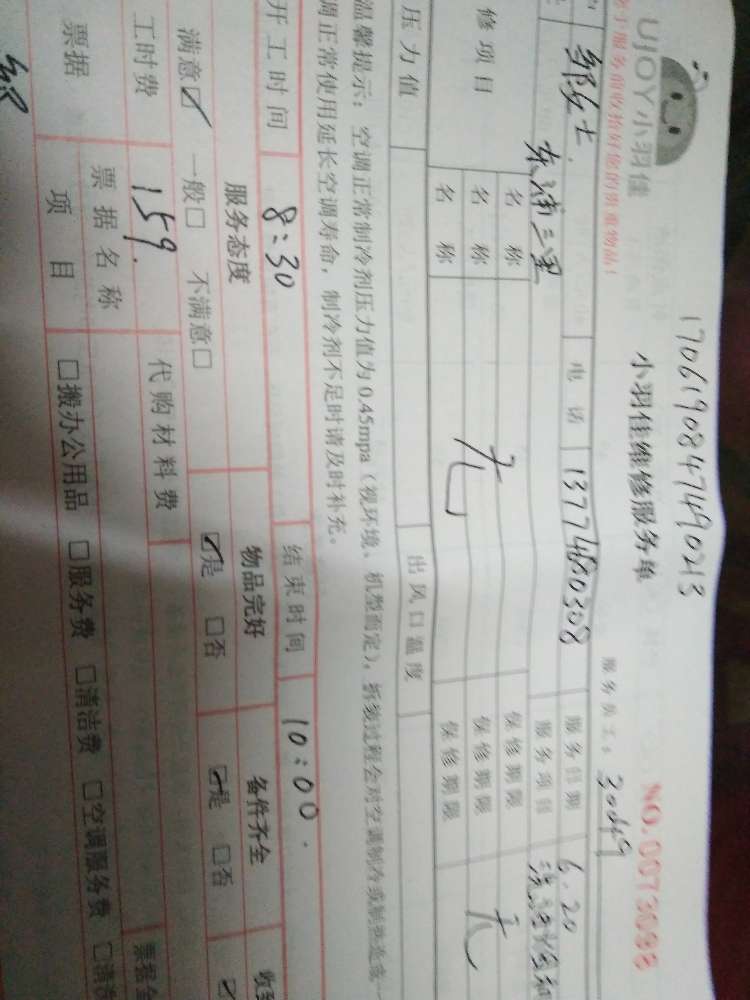 1706190847490213
UJOY小羽佳
小羽佳维修服务单
NO.0073098
服务前收拾好您的贵重物品！
服务员工：
邹女士 电话 13774680308 服务日期 6.20
东浦三里 服务项目
修项目 名称 无 保修期限 无
名称 保修期限
名称 保修期限
压力值 出风口温度
温馨提示：空调正常制冷剂压力值为0.45mpa（视环境、机型而定），拆装过程会对空调制冷或制热造成一
调正常使用延长空调寿命，制冷剂不足时请及时补充。
开工时间 8:30 结束时间 10:00.
服务态度 物品完好 备件齐全
满意☑ 一般□ 不满意□ ☑是 □否 ☑是 □否
工时费 159. 代购材料费
票据 票据名称 票据金
项目 □搬办公用品 □服务费 □清洁费 □空调服务费